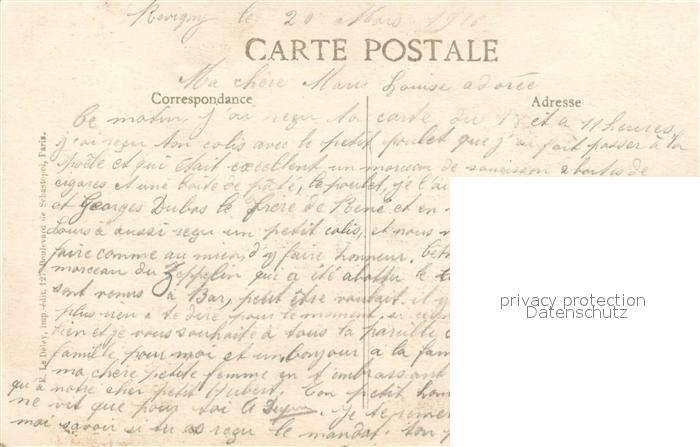 Revigny le 20 Mars 1916
CARTE POSTALE
Ma chère Marie Louise adorée
Correspondance
Adresse
Ce matin j'ai reçu ta carte du 18 et a 11 heures,
j'ai reçu ton colis avec le petit poulet que j'ai fait passer à la
poële et qui était excellent, un morceau de saucisson 2 boites de
cigares et une boite de pâté, le poulet, je l'ai
et Georges Dubos le frère de René et en
Louis à aussi reçu un petit colis, et nous
faire comme au mien d'y faire honneur.
morceau du Zeppelin qui a été abattu le
sont venus à Bar, peut être voulait il
plus rien a te dire pour le moment,
bien et je vous souhaite à tous la pareille
famille, pour moi et un bonjour a la fam
ma chère petite femme en t'embrassant
qu'a notre cher petit Hubert. Ton petit hom
ne vit que pour toi
Je te remer
moi savoir si tu as reçu le mandat. ton
E. Le Deley, imp.-édit. 127, Boulevard de Sébastopol, Paris.
privacy protection
Datenschutz